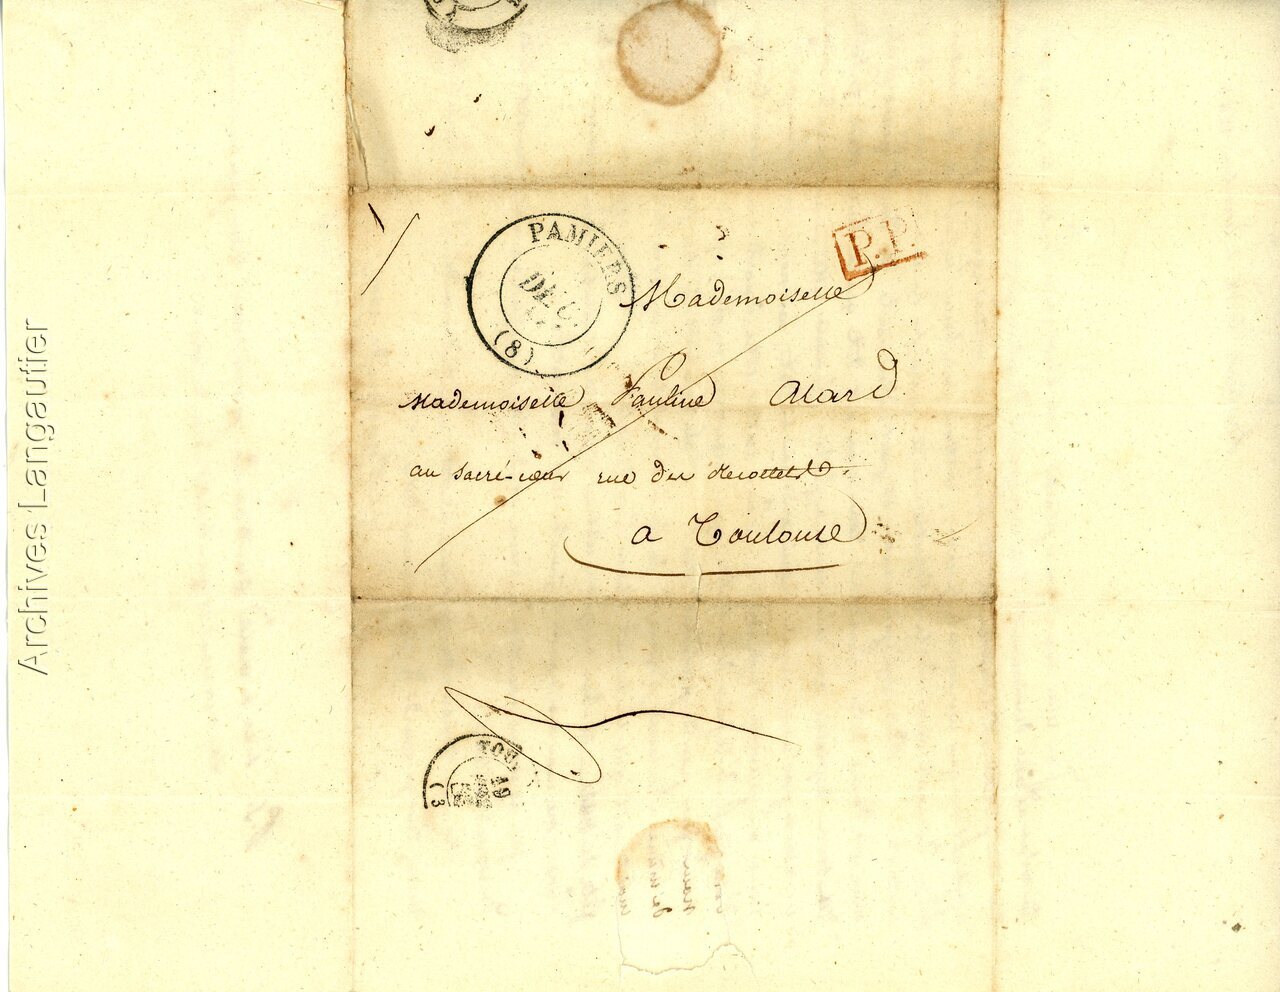 PAMIERS
DEC.
(8)
P.P.
Mademoiselle
Mademoiselle Pauline Alard
au Sacré-cœur rue des Recollets
a Toulouse
TOU
19
(3
Archives Langautier